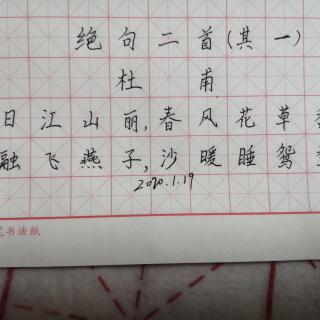 绝句二首(其一)
杜甫
日江山丽,春风花草
融飞燕子,沙暖睡鸳
2020.1.19
笔书法纸